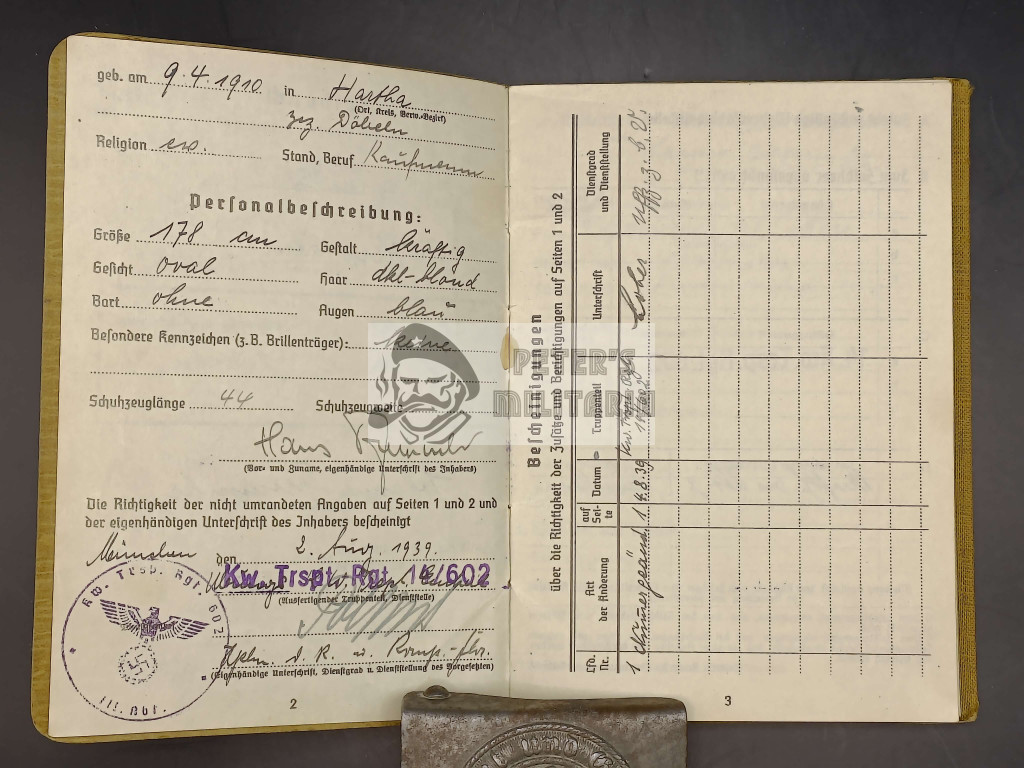 geb. am 9.4.1910 in Hartha
(Ort, Kreis, Verw.-Bezirk)
Bez. Döbeln
Religion ev. Stand, Beruf Kaufmann
Personalbeschreibung:
Größe 178 cm Gestalt kräftig
Gesicht oval Haar dkl-blond
Bart ohne Augen blau
Besondere Kennzeichen (z.B. Brillenträger): keine
Schuhzeuglänge 44 Schuhzeugweite
Hans
(Vor- und Zuname, eigenhändige Unterschrift des Inhabers)
Die Richtigkeit der nicht umrandeten Angaben auf Seiten 1 und 2 und
der eigenhändigen Unterschrift des Inhabers bescheinigt
München den 2. Aug. 1939.
Kw. Trspt. Rgt. 14/602
(Ausfertigender Truppenteil, Dienststelle)
Hptm. d. R. u. Komp.-
(Eigenhändige Unterschrift, Dienstgrad u. Dienststellung des Vorgesetzten)
Kw-Trsp. Rgt. 602
III. Abt.
2
Bescheinigungen
über die Richtigkeit der Zusätze und Berichtigungen auf Seiten 1 und 2
Lfd. Nr.
Art der Änderung
auf Sei-te
Datum
Truppenteil
Unterschrift
Dienstgrad und Dienststellung
1 1 4.8.39 Kw. Trspt. 14/602 Uffz.
3
PETER'S
MILITARIA